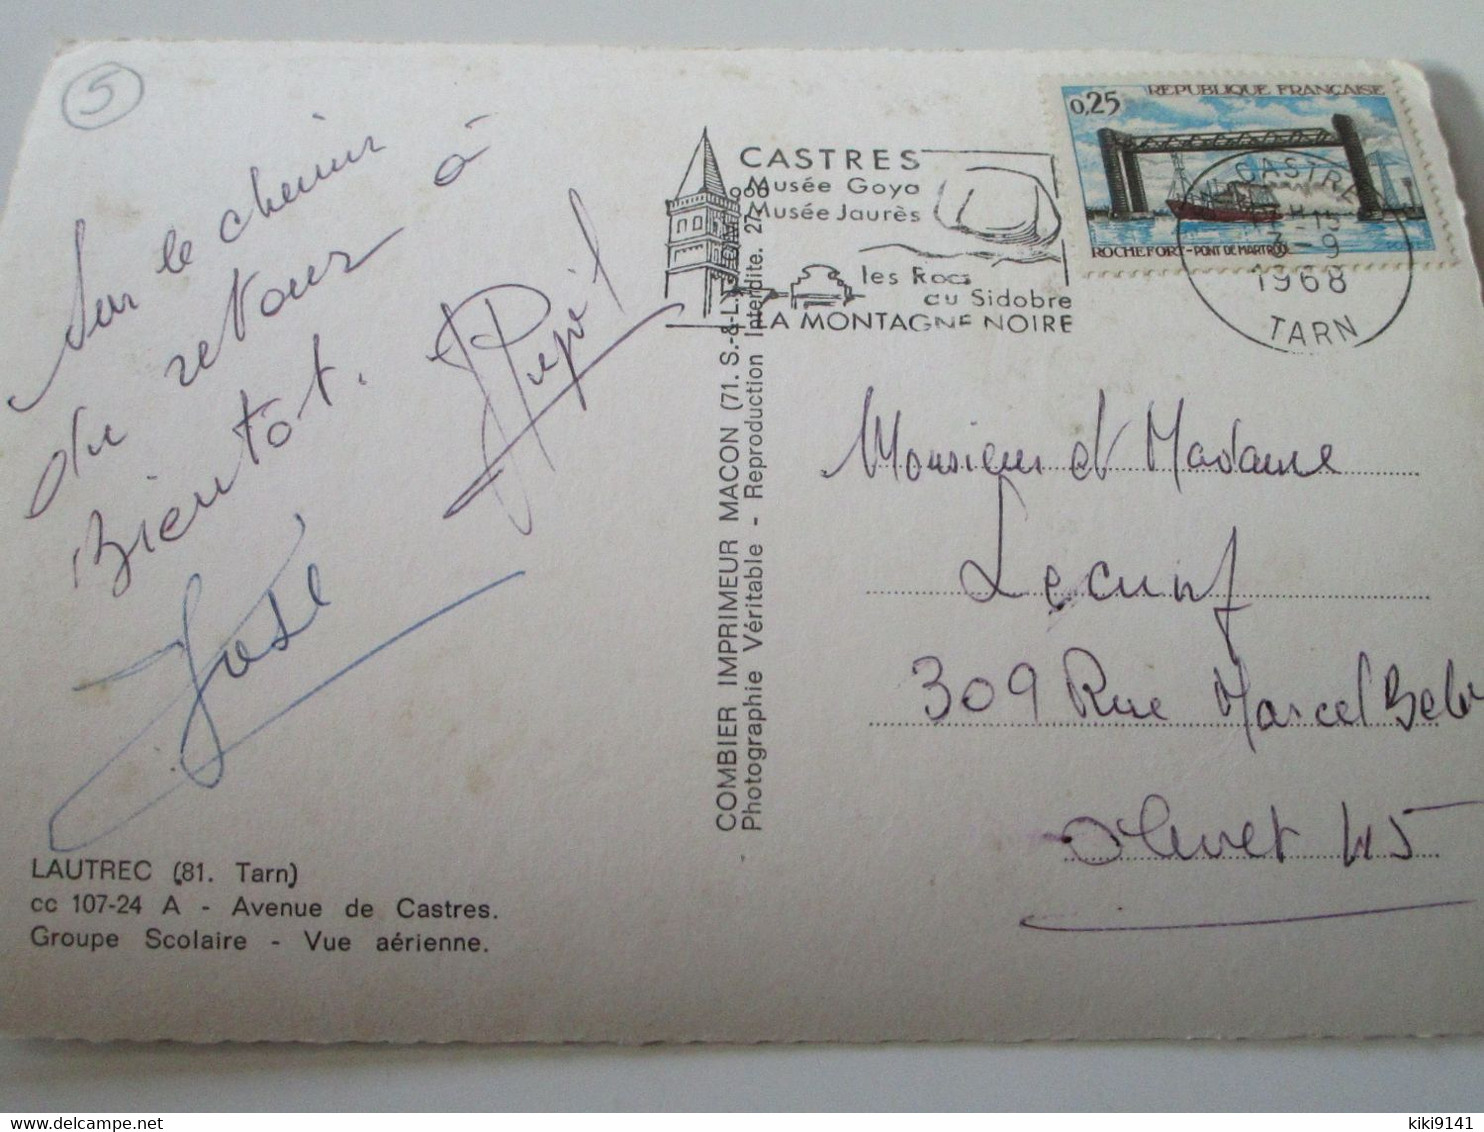 5
Sur le chemin
du retour à
Bientôt.
José
LAUTREC (81. Tarn)
cc 107-24 A - Avenue de Castres.
Groupe Scolaire - Vue aérienne.
COMBIER IMPRIMEUR MACON (71. S.-&-L.)
Photographie Véritable - Reproduction Interdite.
CASTRES
Musée Goya
Musée Jaurès
les Rocs
du Sidobre
LA MONTAGNE NOIRE
0,25
REPUBLIQUE FRANÇAISE
ROCHEFORT-PONT DE MARTROU
POSTES
CASTRES
3-9
1968
TARN
Monsieur et Madame
309 Rue Marcel
Olivet 45
kiki9141